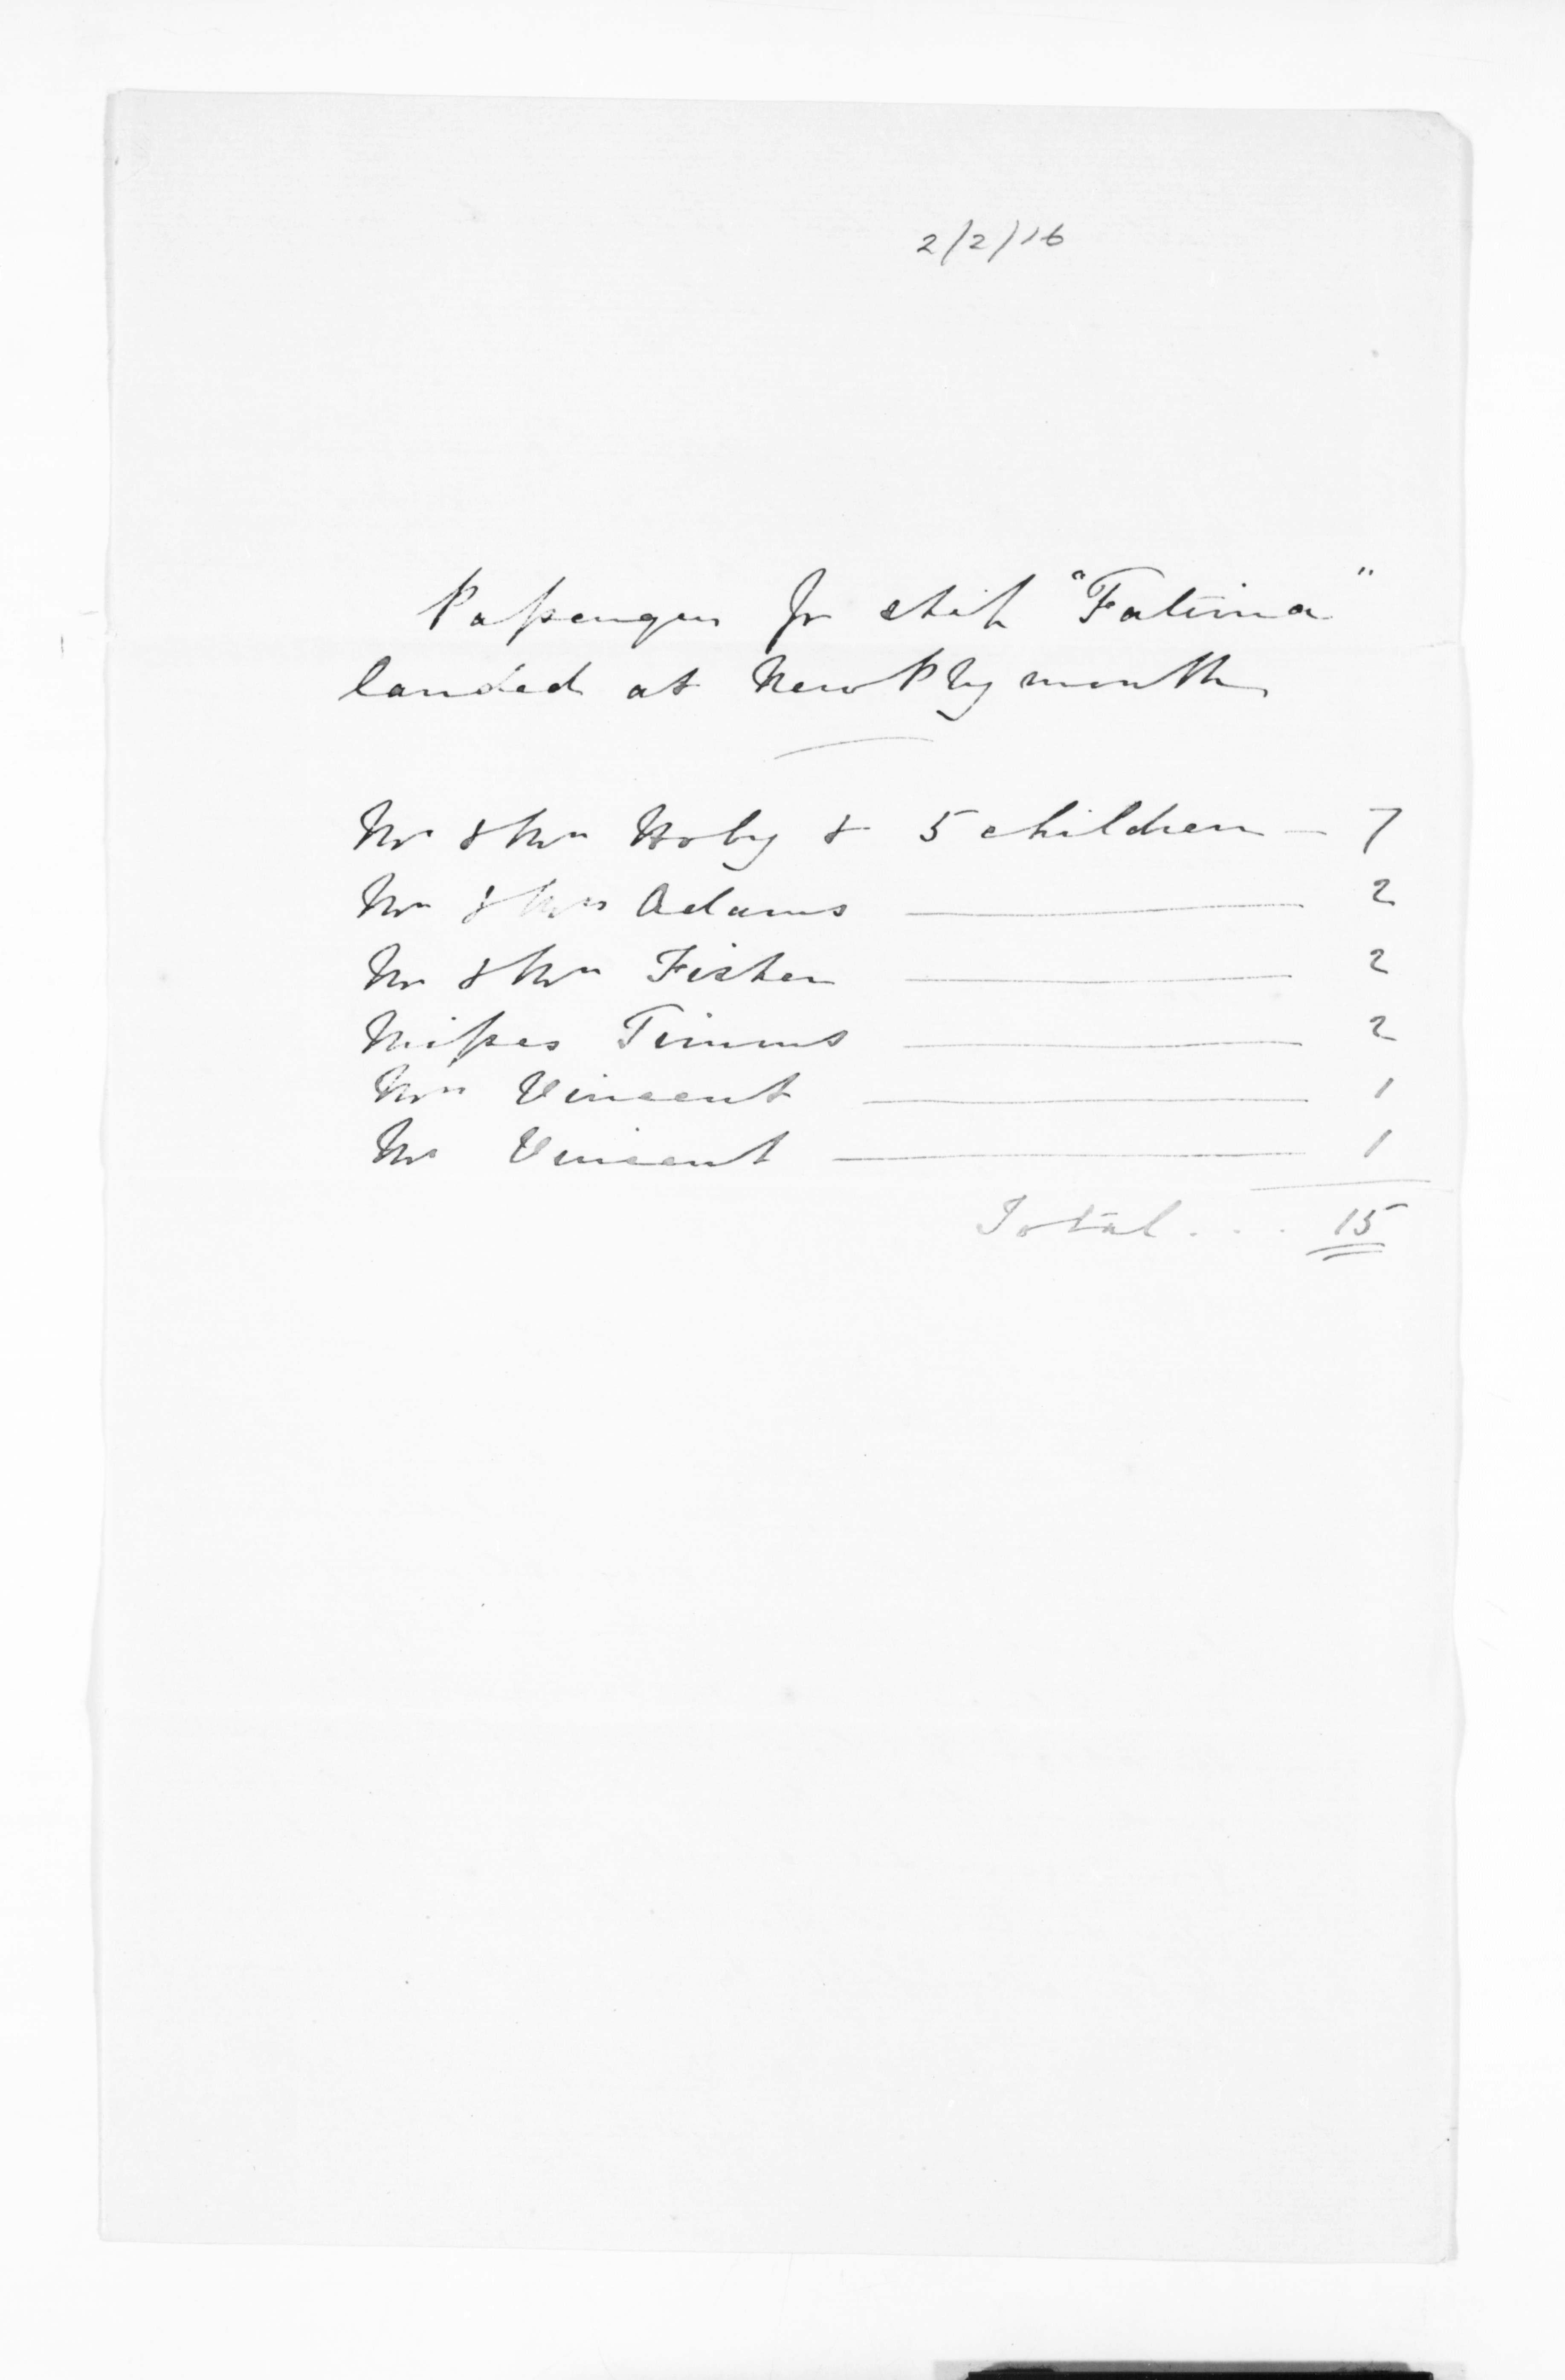 2/2/16
Passengers pr ship "Fatima"
landed at New Plymouth
Mr & Mrs Hoby & 5 children — 7
Mr & Mrs Adams — 2
Mr & Mrs Fisher — 2
Misses Timms — 2
Mrs Vincent — 1
Mr Vincent — 1
Total . . . 15